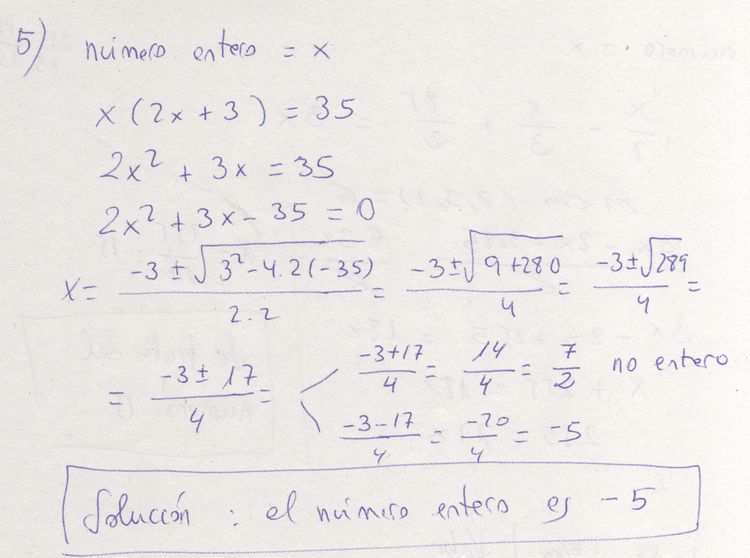 5) número entero = x
x (2x + 3) = 35
2x² + 3x = 35
2x² + 3x - 35 = 0
x = (-3 ± √(3² - 4.2(-35)))/(2.2) = (-3 ± √(9 + 280))/4 = (-3 ± √289)/4 =
= (-3 ± 17)/4 =
(-3+17)/4 = 14/4 = 7/2 no entero
(-3-17)/4 = -20/4 = -5
Solución : el número entero es -5